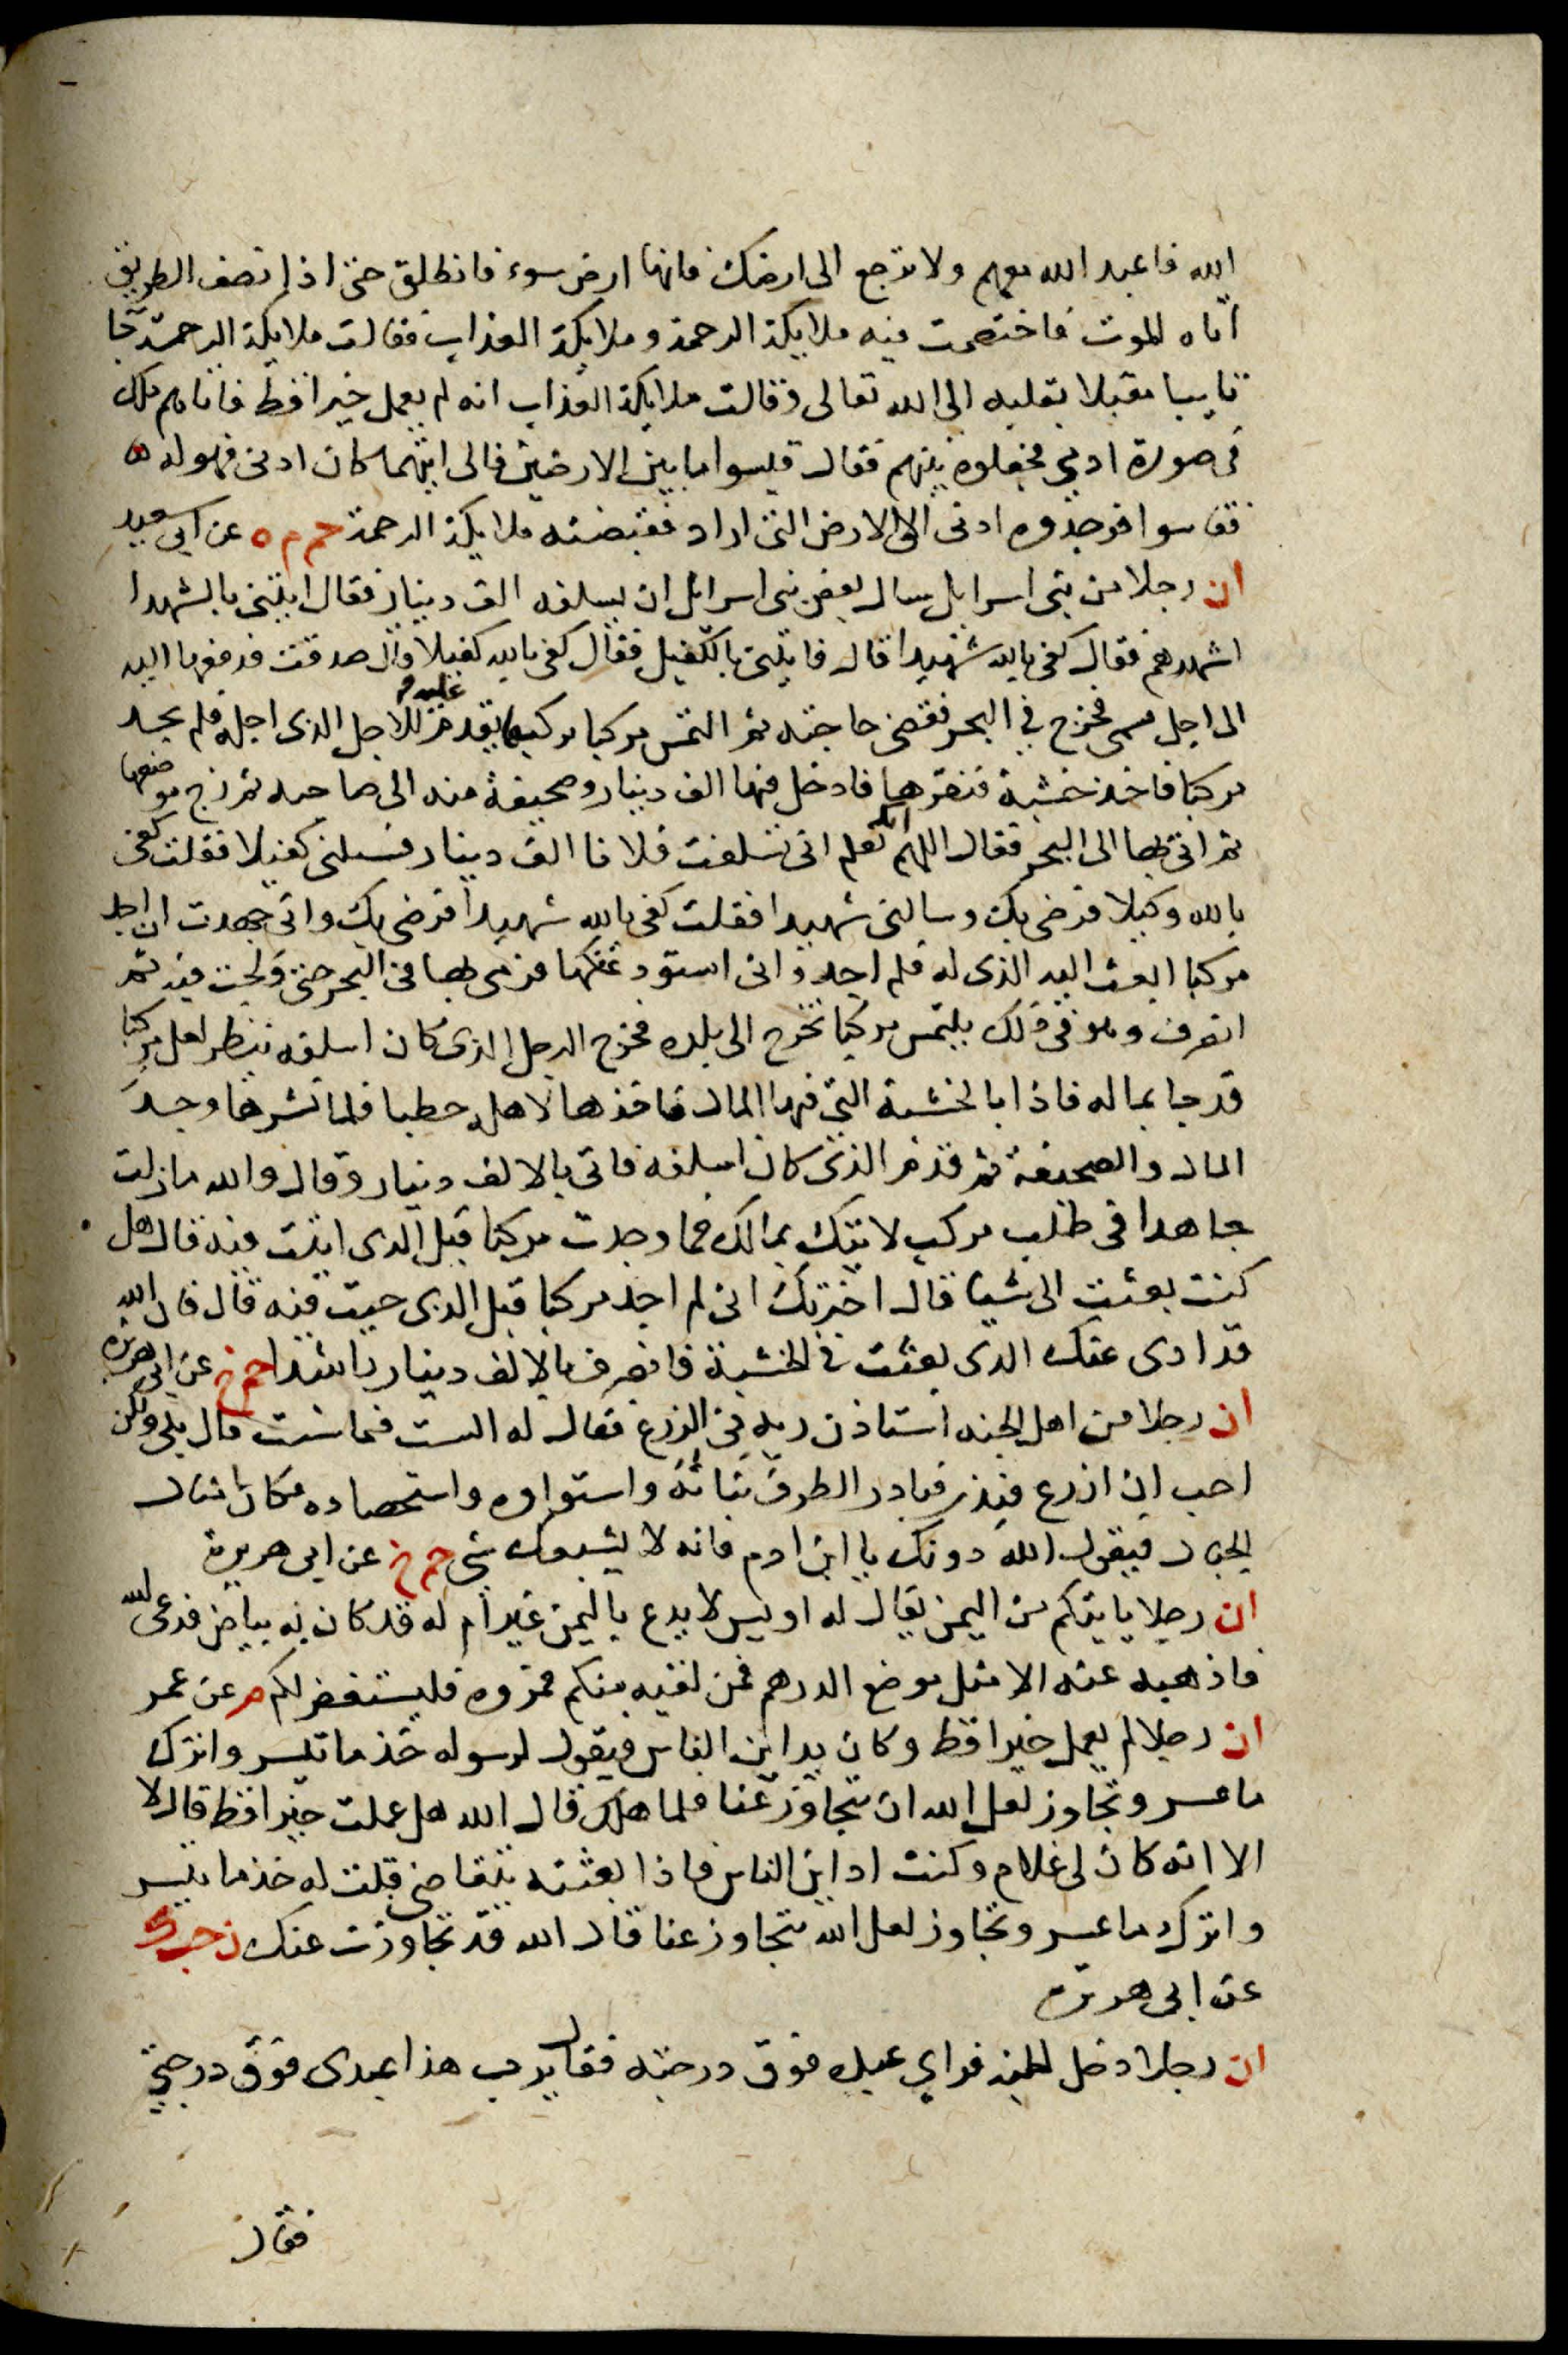 الله فاعبد الله معهم ولا ترجع الى ارضك فانها ارض سوء فانطلق حتى اذا نصف الطريق
اتاه الموت فاختصمت فيه ملايكة الرحمة وملايكة العذاب فقالت ملايكة الرحمة جا
تايبا مقبلا بقلبه الى الله تعالى وقالت ملايكة العذاب انه لم يعمل خيرا قط فاتاهم ملك
فى صورة ادمي فجعلوه بينهم فقال قيسوا ما بين الارضين فالى ايتهما كان ادنى فهو له
فقاسوا فوجدوه ادنى الى الارض التى اراد فقبضته ملايكة الرحمة حم م ه عن ابي سعيد
ان رجلا من بنى اسرايل سال بعض بنى اسرايل ان يسلفه الف دينار فقال ايتنى بالشهدا
اشهدهم فقال كفى بالله شهيدا قال فايتنى بالكفيل فقال كفى بالله كفيلا قال صدقت فدفعها اليه
الى اجل مسمى فخرج في البحر فقضى حاجته ثم التمس مركبا يركبها يقدم عليه للاجل الذى اجله فلم يجد
مركبا فاخذ خشبة فنقرها فادخل فيها الف دينار وصحيفة منه الى صاحبه ثم زج موضعها
ثم اتى بها الى البحر فقال اللهم انك تعلم انى تسلفت فلانا الف دينار فسالنى كفيلا فقلت كفى
بالله وكيلا فرضى بك وسالنى شهيدا فقلت كفى بالله شهيدا فرضى بك وانى جهدت ان اجد
مركبا ابعث اليه الذى له فلم اجد وانى استودعتكها فرمى بها فى البحر حتى ولجت فيه ثم
انصرف وهو فى ذلك يلتمس مركبا تخرج الى بلده فخرج الرجل الذى كان اسلفه ينظر لعل مركبا
قد جا بماله فاذا بالخشبة التى فيها المال فاخذها لاهله حطبا فلما نشرها وجد
المال والصحيفة ثم قدم الذى كان اسلفه فاتى بالالف دينار وقال والله ما زلت
جاهدا فى طلب مركب لاتيك بمالك فما وجدت مركبا قبل الذى اتيت فيه قال هل
كنت بعثت الى شيا قال اخبرتك انى لم اجد مركبا قبل الذى جيت فيه قال فان الله
قد ادى عنك الذى بعثت في الخشبة فانصرف بالالف دينار راشدا حم خ عن ابى هريره
ان رجلا من اهل الجنه استاذن ربه فى الزرع فقال له الست فيما شئت قال بلى ولكن
احب ان ازرع فبذر فبادر الطرف نباته واستواوه واستحصاده فكان امثال
الجبال فيقول الله دونك يا ابن ادم فانه لا يشبعك شى حم خ عن ابى هريرة
ان رجلا ياتيكم من اليمن يقال له اويس لا يدع باليمن غير ام له قد كان به بياض فدعى الله
فاذهبه عنه الا مثل موضع الدرهم فمن لقيه منكم فمروه فليستغفر لكم م عن عمر
ان رجلا لم يعمل خيرا قط وكان يداين الناس فيقول لرسوله خذ ما تيسر واترك
ما عسر وتجاوز لعل الله ان يتجاوز عنا فلما هلك قال الله هل عملت خيرا قط قال لا
الا انه كان لى غلام وكنت اداين الناس فاذا بعثته يتقاضى قلت له خذ ما تيسر
واترك ما عسر وتجاوز لعل الله يتجاوز عنا قال الله قد تجاوزت عنك ن حب ك
عن ابى هريره
ان رجلا دخل الجنه فراى عبده فوق درجته فقال يرب هذا عبدى فوق درجتي
فقال